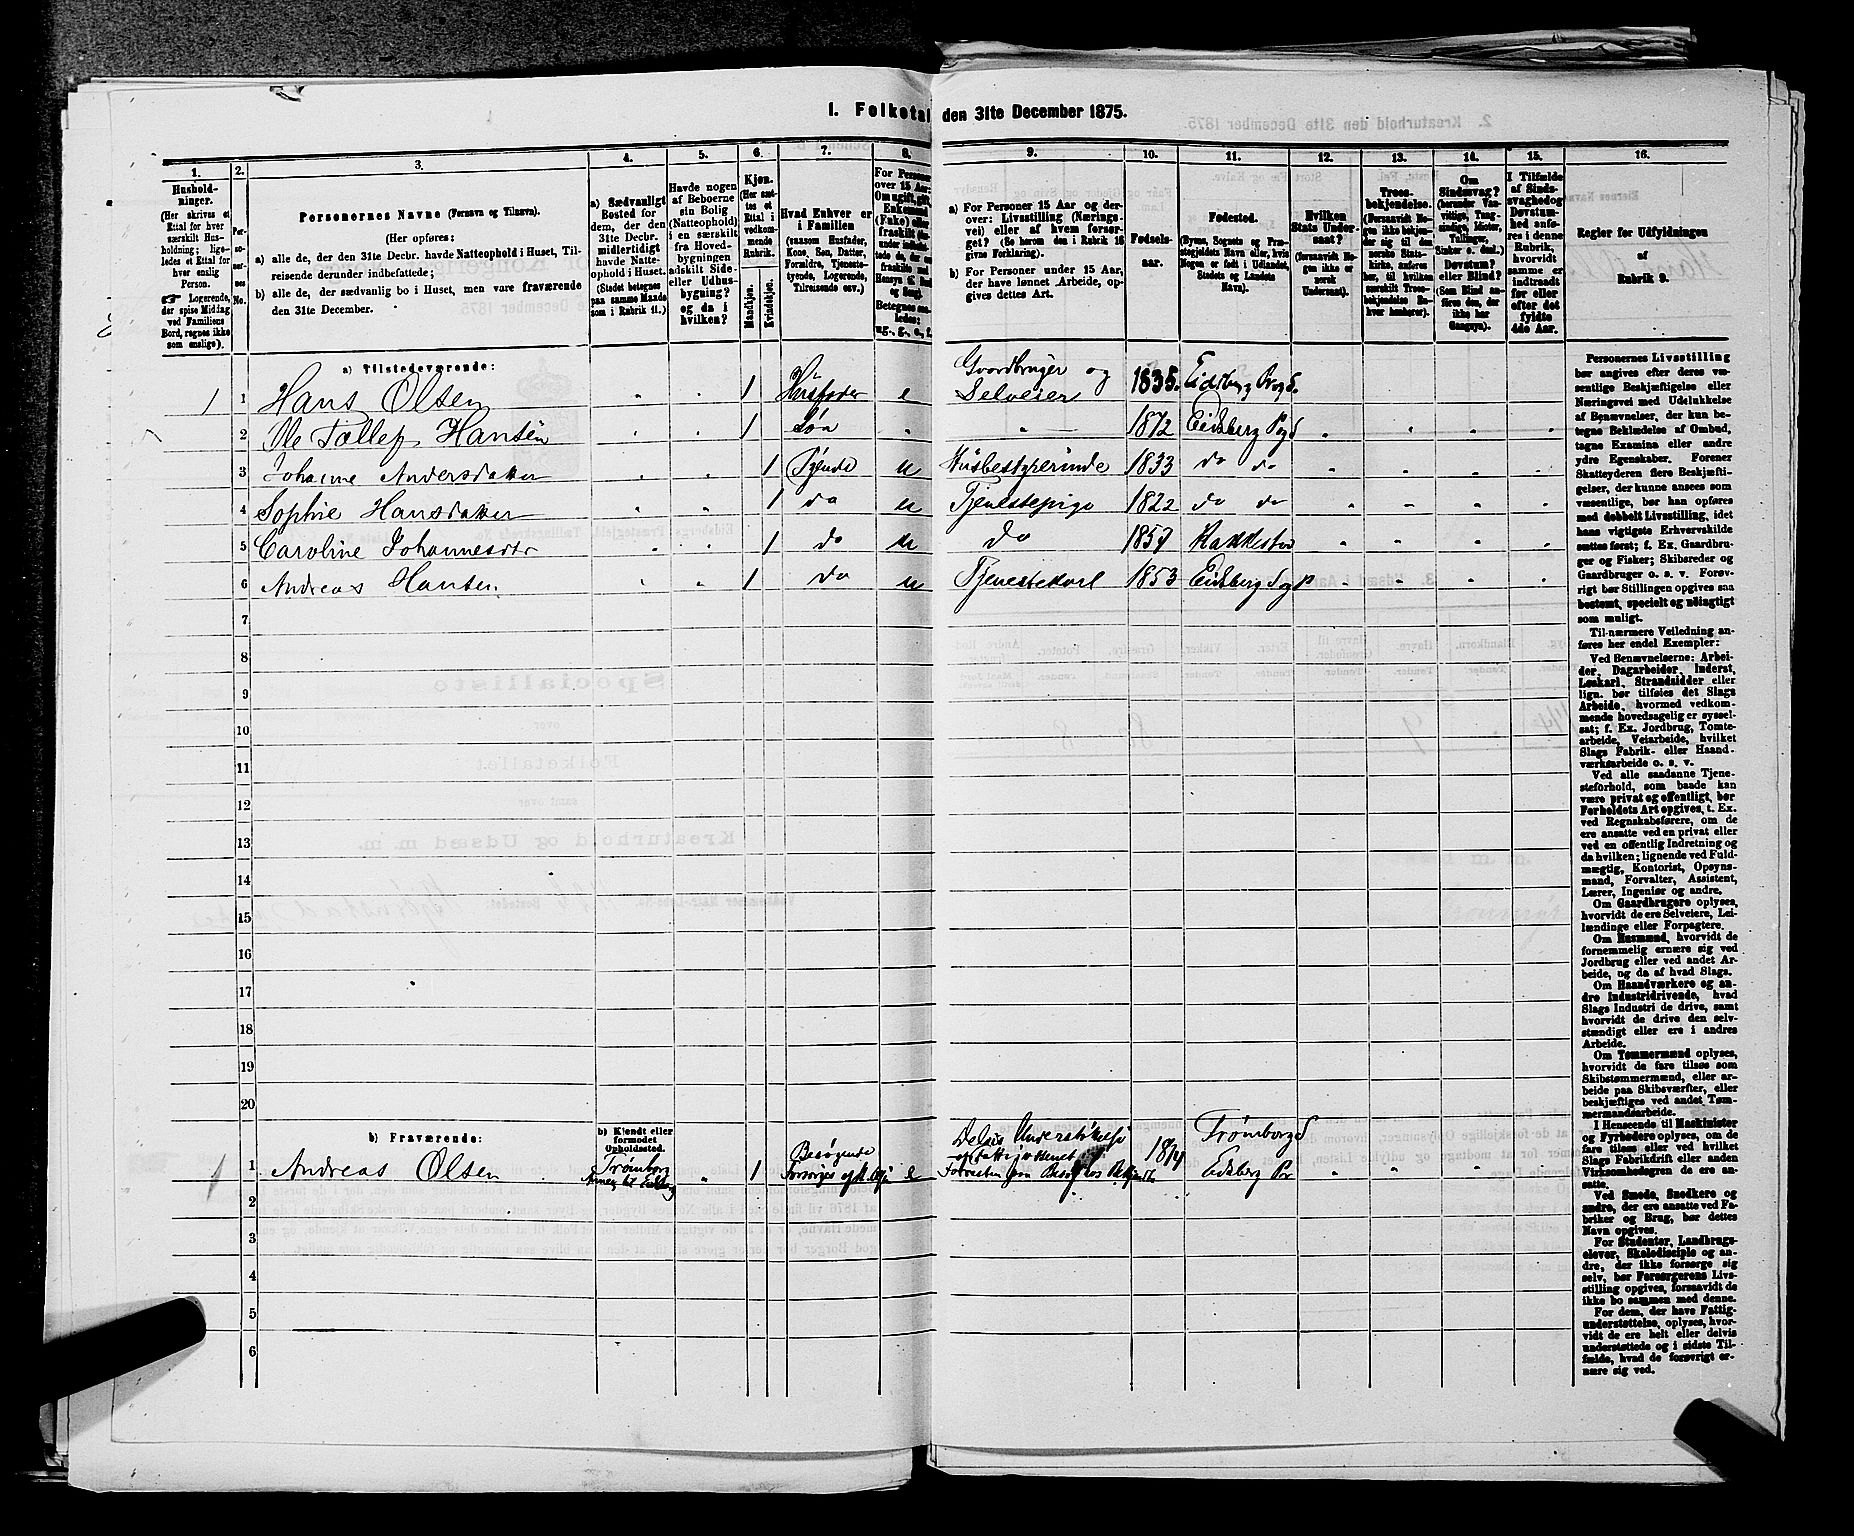 1. Folketal den 31te December 1875.
1. 2. 3. 4. 5. 6. 7. 8. 9. 10. 11. 12. 13. 14. 15. 16.
Hushold-
ninger.
(Her skrives et
Ettal for hver
særskilt Hus-
holdning; lige-
ledes et Ettal for
hver enslig
Person.
☞ Logerende,
der spise Middag
ved Familiens
Bord, regnes ikke
som enslige).
Personernes Navne (Fornavn og Tilnavn).
(Her opføres:
a) alle de, der den 31te Decbr. havde Natteophold i Huset, Til-
reisende derunder indbefattede;
b) alle de, der sædvanlig bo i Huset, men vare fraværende
den 31te December.
a) Sædvanligt
Bosted for
dem, der den
31te Decbr.
midlertidigt
havde Natte-
ophold i Huset.
(Stedet betegnes
paa samme Maade
som i Rubrik 11.)
Havde nogen
af Beboerne
sin Bolig
(Natteophold)
i en særskilt
fra Hoved-
bygningen
adskilt Side-
eller Udhus-
bygning?
og da i
hvilken?
Kjøn.
(Her sæt-
tes et
Ettal i
vedkom-
mende
Rubrik.
Mandkjøn.
Kvindekjøn.
Hvad Enhver er
i Familien
(saasom Husfader,
Kone, Søn, Datter,
Forældre, Tjeneste-
tyende, Logerende,
Tilreisende osv.)
a) For Personer 15 Aar og der-
over: Livsstilling (Nærings-
vei) eller af hvem forsør-
get? (Se herom den i Rubrik 16
givne Forklaring).
b) For Personer under 15 Aar,
der have lønnet Arbeide, op-
gives dettes Art.
Fødsels-
aar.
Fødested.
(Byens, Sognets og Præ-
stegjeldets Navn eller, hvis
Nogen er født i Udlandet,
Stedets og Landets
Navn).
Hvilken
Stats Under-
saat?
(forsaavidt No-
gen ikke er
norsk
Undersaat).
Troes-
bekjendelse.
Om
Sindssvag?
Døvstum?
eller Blind?
(Som Blind an-
føres den, der
ikke har
Gangsyn).
I Tilfælde
af Sinds-
svaghed og
Døvstum-
hed anfø-
res i denne
Rubrik,
hvorvidt
samme er
indtraadt
før eller
efter det
fyldte
4de Aar.
Regler for Udfyldningen
af
Rubrik 9.
a) Tilstedeværende:
1 1 Hans Olsen 1 Husfader e Gaardbruger og Selveier 1835. Eidsberg
2 Ole Tollef Hansen 1 Søn 1872 Eidsberg
3 Johanne Andersdatter 1 Tjende u Husbestyrerinde 1833 do do
4 Sophie Hansdatter 1 do u Tjenestepige 1822 do do
5 Caroline 1 do u do 1857 Rakkestad
6 Andreas Hansen 1 do u Tjenestekarl 1853 Eidsberg
7
8
9
10
11
12
13
14
15
16
17
18
19
20
b) Fraværende:
b) Kjendt eller
formodet
Opholdssted.
1 Andreas Olsen Trømborg 1 Besøgende e 1814 Trømborg Eidsberg
2
3
4
5
6
Personernes Livsstilling
bør angives efter deres væ-
sentlige Beskjæftigelse eller
Næringsvei med Udelukkelse
af Benævnelser, der kun be-
tegne Beklædelse af Ombud,
tagne Examina eller andre
ydre Egenskaber. Forener
Skatteyderen flere Beskjæfti-
gelser, der kunne ansees som
væsentlige, bør han opføres
med dobbelt Livsstilling, idet
hans vigtigste Erhvervskilde
sættes først; f. Ex. Gaardbru-
ger og Fisker; Skibsreder og
Gaardbruger o. s. v. Forøv-
rigt bør Stillingen opgives saa
bestemt, specielt og nøiagtigt
som muligt.
Til nærmere Veiledning an-
føres her endel Exempler:
Ved Benævnelserne: Arbei-
der, Dagarbeider, Inderst,
Løskarl, Strandsidder eller
lign. bør tilføies det Slags
Arbeide, hvormed vedkom-
mende hovedsagelig er syssel-
sat; f. Ex. Jordbrug, Tomte-
arbeide, Veiarbeide, hvilket
Slags Fabrik- eller Haand-
værksarbeide o. s. v.
Ved alle saadanne Tjene-
steforhold, som baade kan
være privat og offentligt, bør
Forholdets Art opgives, t. Ex.
ved Regnskabsførere, om de
ere ansatte ved en privat eller
ved en offentlig Indretning og
da hvilken; lignende ved Fuld-
mægtig, Kontorist, Opsyns-
mand, Forvalter, Assistent,
Lærer, Ingeniør og andre.
Om Gaardbrugere oplyses,
hvorvidt de ere Selveiere, Lei-
lændinge eller Forpagtere.
Om Husmænd, hvorvidt de
fornemmelig ernære sig ved
Jordbrug eller ved andet Ar-
beide, og da af hvad Slags.
Om Haandværkere og an-
dre Industridrivende, hvad
Slags Industri de drive, samt
hvorvidt de drive den selv-
stændigt eller ere i andres
Arbeide.
Om Tømmermænd oplyses,
hvorvidt de fare tilsøs som
Skibstømmermænd, eller ar-
beide paa Skibsværfter, eller
beskjæftiges ved andet Tøm-
mermandsarbeide.
I Henseende til Maskinister
og Fyrbødere oplyses, om de
fare tilsøs eller ved hvilket
Slags Fabrikdrift eller anden
Virksomhedsgren de ere an-
satte.
Ved Smede, Snedkere og
andre, der ere ansatte ved Fa-
briker og Brug, bør dettes
Navn opgives.
For Studenter, Landbrugs-
elever, Skoledisciple og an-
dre, der ikke forsørge sig
selv, bør Forsørgerens Livs-
stilling opgives, forsaavidt de
ikke bo sammen med denne.
For dem, der have Fattig-
understøttelse, oplyses, hvor-
vidt de ere helt eller delvis
understøttede og i sidste Til-
fælde, hvad de forøvrigt er-
nære sig ved.